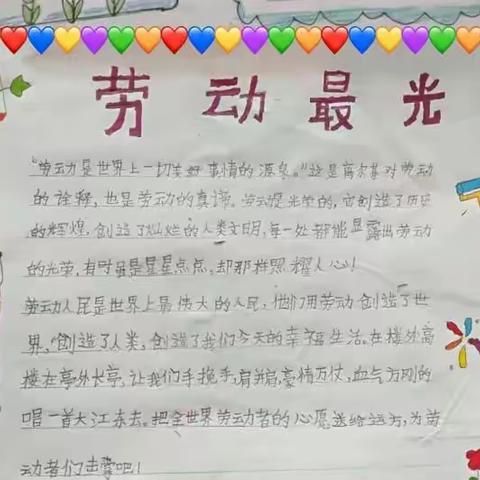 劳动最光
“劳动是世界上一切美好事情的源泉。”这是高尔基对劳动
的诠释，也是劳动的真谛。劳动是光荣的，它创造了历史
的辉煌，创造了灿烂的人类文明，每一处都能显露出劳动
的光荣，有时虽是星星点点，却那样照耀人心！
劳动人民是世界上最伟大的人民，他们用劳动创造了世
界，创造了人类，创造了我们今天的幸福生活。在楼外高
楼在亭外长亭，让我们手挽手，肩并肩，豪情万仗，血气方刚的
唱一首大江东去。把全世界劳动者的心愿送给远方，为劳
动者们击掌吧！